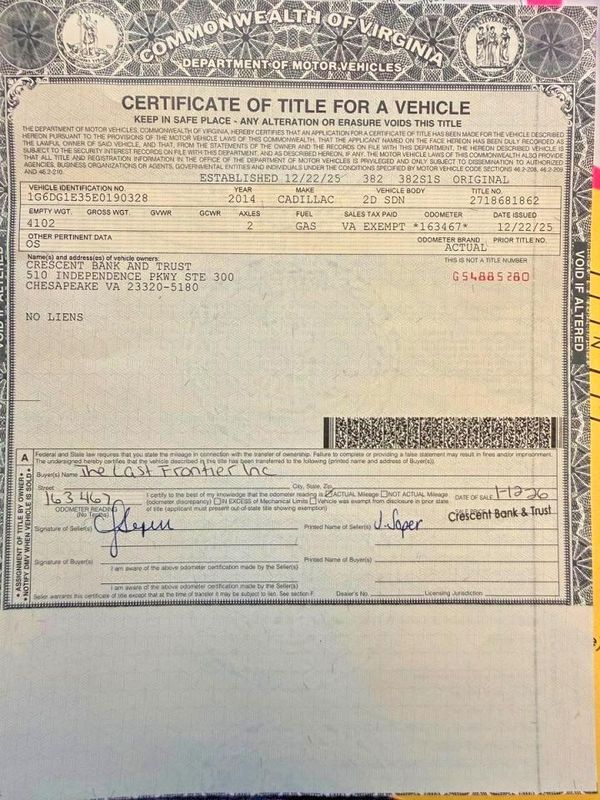 COMMONWEALTH OF VIRGINIA
DEPARTMENT OF MOTOR VEHICLES
CERTIFICATE OF TITLE FOR A VEHICLE
KEEP IN SAFE PLACE - ANY ALTERATION OR ERASURE VOIDS THIS TITLE
THE DEPARTMENT OF MOTOR VEHICLES, COMMONWEALTH OF VIRGINIA, HEREBY CERTIFIES THAT AN APPLICATION FOR A CERTIFICATE OF TITLE HAS BEEN MADE FOR THE VEHICLE DESCRIBED
HEREON PURSUANT TO THE PROVISIONS OF THE MOTOR VEHICLE LAWS OF THIS COMMONWEALTH, THAT THE APPLICANT NAMED ON THE FACE HEREON HAS BEEN DULY RECORDED AS
THE LAWFUL OWNER OF SAID VEHICLE, AND THAT, FROM THE STATEMENTS OF THE OWNER AND THE RECORDS ON FILE WITH THIS DEPARTMENT, THE HEREON DESCRIBED VEHICLE IS
SUBJECT TO THE SECURITY INTEREST RECORDS ON FILE WITH THIS DEPARTMENT, AND AS DESCRIBED HEREON, IF ANY. THE MOTOR VEHICLE LAWS OF THIS COMMONWEALTH ALSO PROVIDE
THAT ALL TITLE AND REGISTRATION INFORMATION IN THE OFFICE OF THE DEPARTMENT OF MOTOR VEHICLES IS PRIVILEGED AND ONLY SUBJECT TO DISSEMINATION TO AUTHORIZED
AGENCIES, BUSINESS ORGANIZATIONS OR AGENTS, GOVERNMENTAL ENTITIES AND INDIVIDUALS UNDER THE CONDITIONS SPECIFIED BY MOTOR VEHICLE CODE SECTIONS 46.2-208, 46.2-209
AND 46.2-210.
ESTABLISHED 12/22/25 382 382S1S ORIGINAL
VEHICLE IDENTIFICATION NO. YEAR MAKE VEHICLE BODY TITLE NO.
1G6DG1E35E0190328 2014 CADILLAC 2D SDN 2718681862
EMPTY WGT. GROSS WGT. GVWR GCWR AXLES FUEL SALES TAX PAID ODOMETER DATE ISSUED
4102 2 GAS VA EXEMPT *163467* 12/22/25
OTHER PERTINENT DATA ODOMETER BRAND PRIOR TITLE NO.
OS ACTUAL
Name(s) and address(es) of vehicle owners: THIS IS NOT A TITLE NUMBER
CRESCENT BANK AND TRUST G54885280
510 INDEPENDENCE PKWY STE 300
CHESAPEAKE VA 23320-5180
NO LIENS
VOID IF ALTERED
VOID IF ALTERED
A Federal and State law requires that you state the mileage in connection with the transfer of ownership. Failure to complete or providing a false statement may result in fines and/or imprisonment.
The undersigned hereby certifies that the vehicle described in this title has been transferred to the following (printed name and address of Buyer(s)).
Buyer(s) Name The Last Frontier Inc
Street City, State, Zip
163467 I certify to the best of my knowledge that the odometer reading is ACTUAL Mileage NOT ACTUAL Mileage DATE OF SALE 1-12-26
ODOMETER READING (odometer discrepancy) IN EXCESS of Mechanical Limits Vehicle was exempt from disclosure in prior state
(No Tenths) of title (applicant must present out-of-state title showing exemption)
Crescent Bank & Trust
Signature of Seller(s) J Soper Printed Name of Seller(s) J. Soper
I am aware of the above odometer certification made by the Seller(s)
Signature of Buyer(s) Printed Name of Buyer(s)
I am aware of the above odometer certification made by the Seller(s)
Seller warrants this certificate of title except that at the time of transfer it may be subject to lien. See section F. Dealer's No. Licensing Jurisdiction
• ASSIGNMENT OF TITLE BY OWNER •
• NOTIFY DMV WHEN VEHICLE IS SOLD •